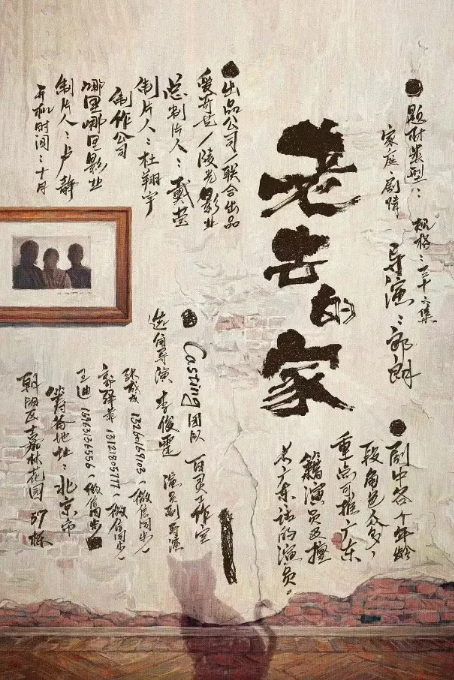 题材类型：
家庭、剧情
规格：三十六集
导演：
老去的家
剧中各个年龄
段角色众多，
重点可推广东
籍演员及擅
长广东话的演员。
出品公司/联合出品
爱奇艺/陵光影业
总制片人：戴莹
制片人：杜翔宇
制作公司
哪里哪里影业
制片人：卢静
开机时间：十月
Casting团队 工作室
选角导演 李俊霆 演员副导演
（微信同步）
（微信同步）
王迪 （微信同步）
地址：北京市
朝阳区嘉林花园 37栋